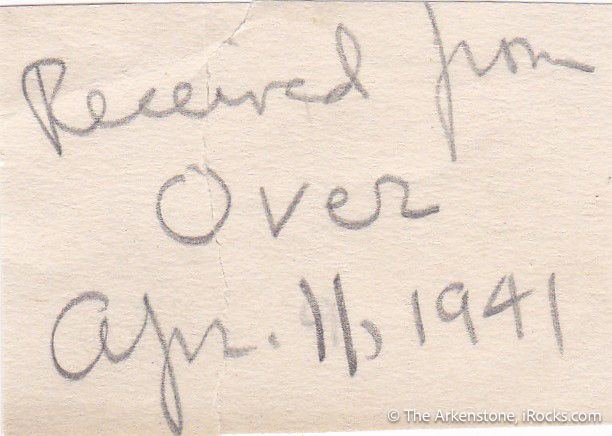 Received from
Over
Apr. 11, 1941
© The Arkenstone, iRocks.com